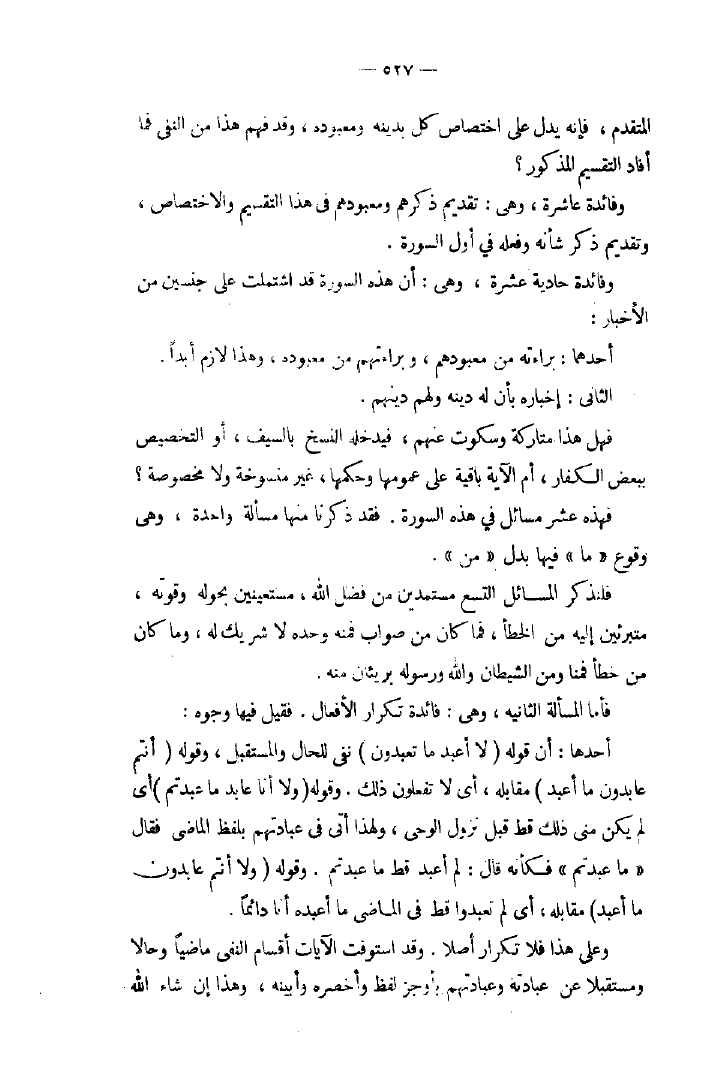 — ٥٢٧ —
المتقدم ، فإنه يدل على اختصاص كل بدينه ومعبوده ، وقد فهم هذا من النفى فما
أفاد التقسيم المذكور ؟
وفائدة عاشرة ، وهى : تقديم ذكرهم ومعبودهم فى هذا التقسيم والاختصاص ،
وتقديم ذكر شأنه وفعله في أول السورة .
وفائدة حادية عشرة ، وهى : أن هذه السورة قد اشتملت على جنسين من
الأخبار :
أحدها : براءته من معبودهم ، وبراءتهم من معبوده ، وهذا لازم أبداً .
الثانى : إخباره بأن له دينه ولهم دينهم .
فهل هذا متاركة وسكوت عنهم ، فيدخله النسخ بالسيف ، أو التخصيص
ببعض الكفار ، أم الآية باقية على عمومها وحكمها ، غير منسوخة ولا مخصوصة ؟
فهذه عشر مسائل في هذه السورة . فقد ذكرنا منها مسألة واحدة ، وهى
وقوع « ما » فيها بدل « من » .
فلنذكر المسائل التسع مستمدين من فضل الله ، مستعينين بحوله وقوته ،
متبرئين إليه من الخطأ ، فما كان من صواب فمنه وحده لا شريك له ، وما كان
من خطأ فمنا ومن الشيطان والله ورسوله بريئان منه .
فأما المسألة الثانيه ، وهى : فائدة تكرار الأفعال . فقيل فيها وجوه :
أحدها : أن قوله ( لا أعبد ما تعبدون ) نفى للحال والمستقبل ، وقوله ( أنتم
عابدون ما أعبد ) مقابله ، أى لا تفعلون ذلك . وقوله ( ولا أنا عابد ما عبدتم ) أى
لم يكن منى ذلك قط قبل نزول الوحى ، ولهذا أتى فى عبادتهم بلفظ الماضى فقال
« ما عبدتم » فكأنه قال : لم أعبد قط ما عبدتم . وقوله ( ولا أنتم عابدون
ما أعبد ) مقابله ، أى لم تعبدوا قط فى الماضى ما أعبده أنا دائماً .
وعلى هذا فلا تكرار أصلا . وقد استوفت الآيات أقسام النفى ماضياً وحالا
ومستقبلا عن عبادته وعبادتهم بأوجز لفظ وأخصره وأبينه ، وهذا إن شاء الله